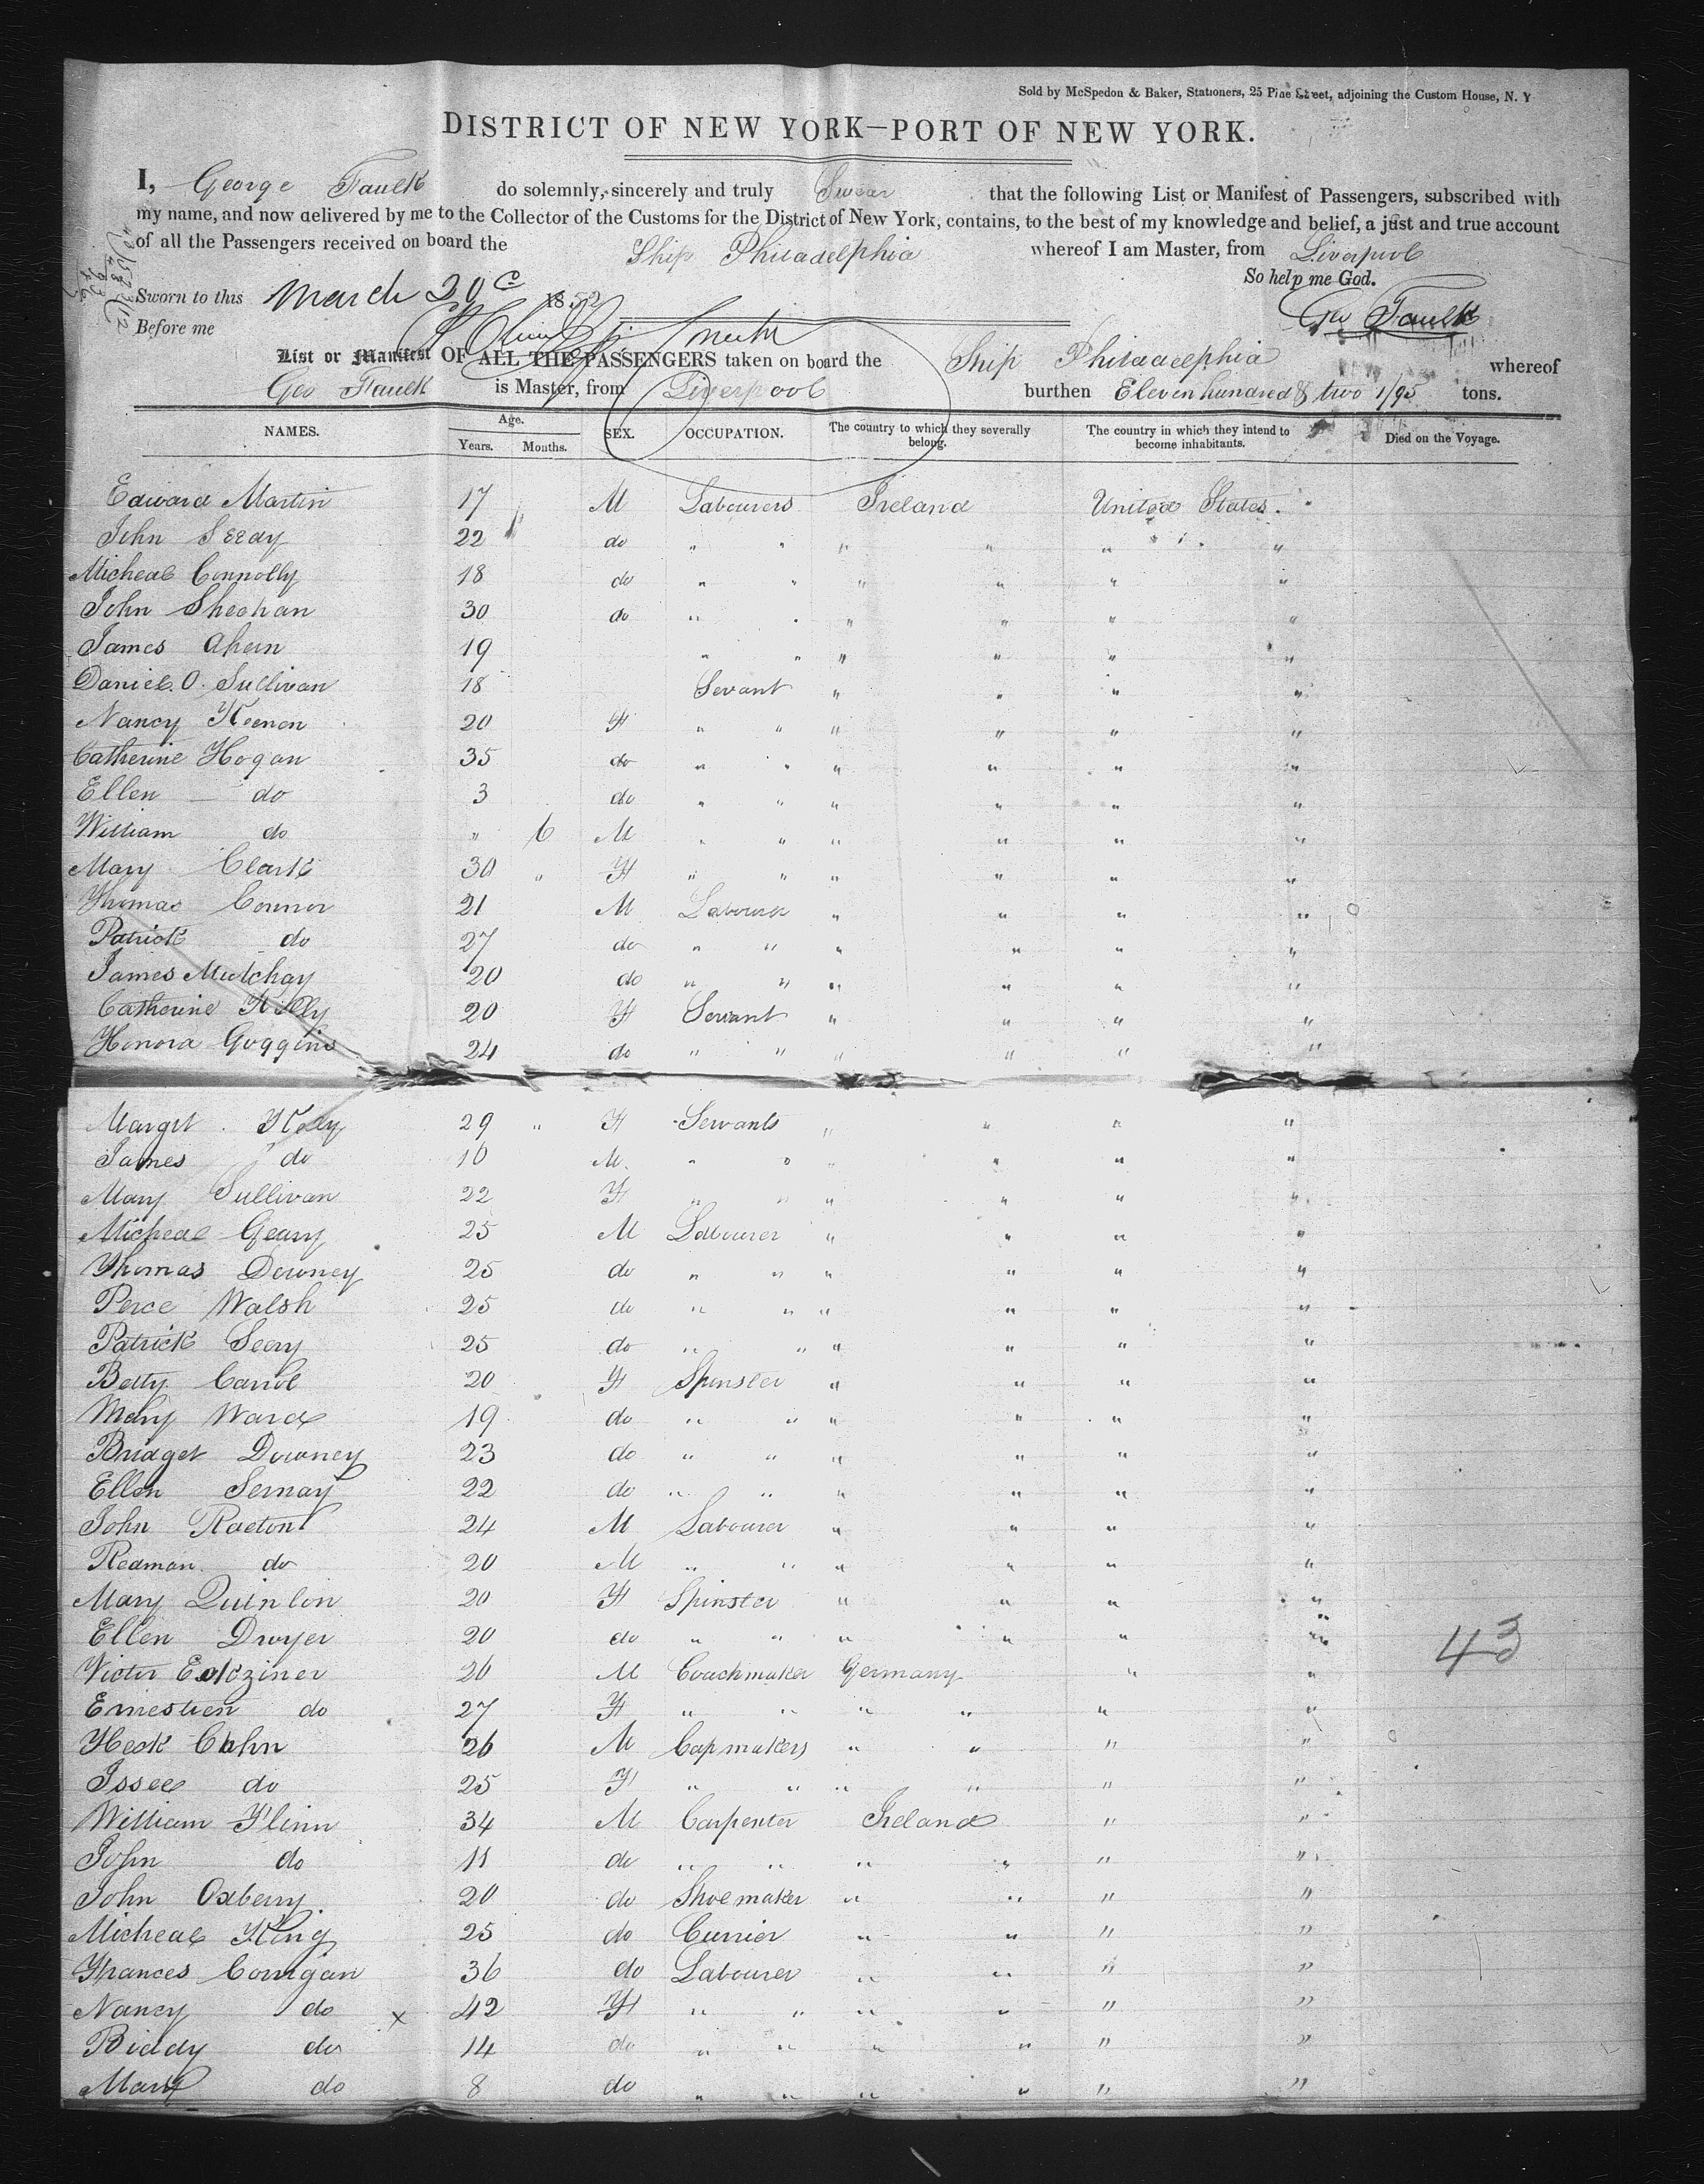 Sold by McSpedon & Baker, Stationers, 25 Pine Street, adjoining the Custom House, N. Y
DISTRICT OF NEW YORK—PORT OF NEW YORK.
I, George Faulk do solemnly, sincerely and truly Swear that the following List or Manifest of Passengers, subscribed with
my name, and now delivered by me to the Collector of the Customs for the District of New York, contains, to the best of my knowledge and belief, a just and true account
of all the Passengers received on board the Ship Philadelphia whereof I am Master, from Liverpool
So help me God.
Sworn to this March 20 1852 Geo Faulk
Before me
List or Manifest OF ALL THE PASSENGERS taken on board the Ship Philadelphia whereof
Geo Faulk is Master, from Liverpool burthen Eleven hundred & two 1/95 tons.
NAMES. Age. Years. Months. SEX. OCCUPATION. The country to which they severally belong. The country in which they intend to become inhabitants. Died on the Voyage.
Edward Martin 17 M Labourers Ireland United States.
John 22 do " " " " " "
Micheal Connolly 18 do " " " " " "
John Sheahan 30 do " " " " " "
James Ahern 19 " " " " " "
Daniel O. Sullivan 18 Servant " " " "
Nancy Keenen 20 F " " " " " "
Catherine Hogan 35 do " " " " " "
Ellen do 3 do " " " " " "
William do " 6 M " " " " " "
Mary Clark 30 " F " " " " " "
Thomas Connor 21 M Labourer " " " "
Patrick do 27 do " " " " " "
James Mulchay 20 do " " " " " "
Catherine Killy 20 F Servant " " " "
Honora Goggins 24 do " " " " " "
Margit 29 " F Servants " " " "
James do 10 M. " " " " " "
Mary Sullivan 22 F " " " " " "
Micheal Geary 25 M Labourer " " " "
Thomas Downey 25 do " " " " " "
Perce Walsh 25 do " " " " " "
Patrick Seery 25 do " " " " " "
Betty Carrol 20 F Spinster " " " "
Mary Ward 19 do " " " " " "
Bridget Downey 23 do " " " " " "
Ellen Sernay 22 do " " " " " "
John Raeton 24 M Labourer " " " "
Redman do 20 M " " " " " "
Mary Quinlon 20 F Spinster " " " "
Ellen Dwyer 20 do " " " " " "
43
Victor 26 M Coachmaker Germany " "
Ernestien do 27 F " " " " " "
Heck Cohn 26 M Capmakers " " " "
Issee do 25 F " " " " " "
William Flinn 34 M Carpenter Ireland " "
John do 11 do " " " " " "
John Oxberry 20 do Shoemaker " " " "
Micheal King 25 do Currier " " " "
Frances Corrigan 36 do Labourer " " " "
Nancy do x 42 F " " " " " "
Biddy do 14 do " " " " " "
Mary do 8 do " " " " " "